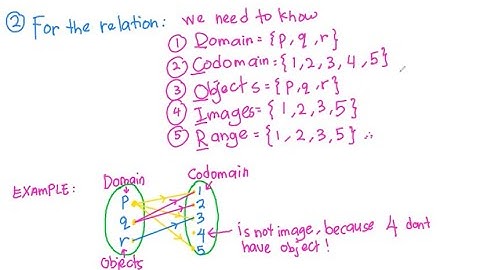 ② For the relation: we need to know
① Domain = {p, q, r}
② Codomain = {1, 2, 3, 4, 5}
③ Objects = {p, q, r}
④ Images = {1, 2, 3, 5}
⑤ Range = {1, 2, 3, 5} ∴
EXAMPLE:
Domain Codomain
p 1
q 2
r 3
4
5
Objects
is not image, because 4 dont
have object!